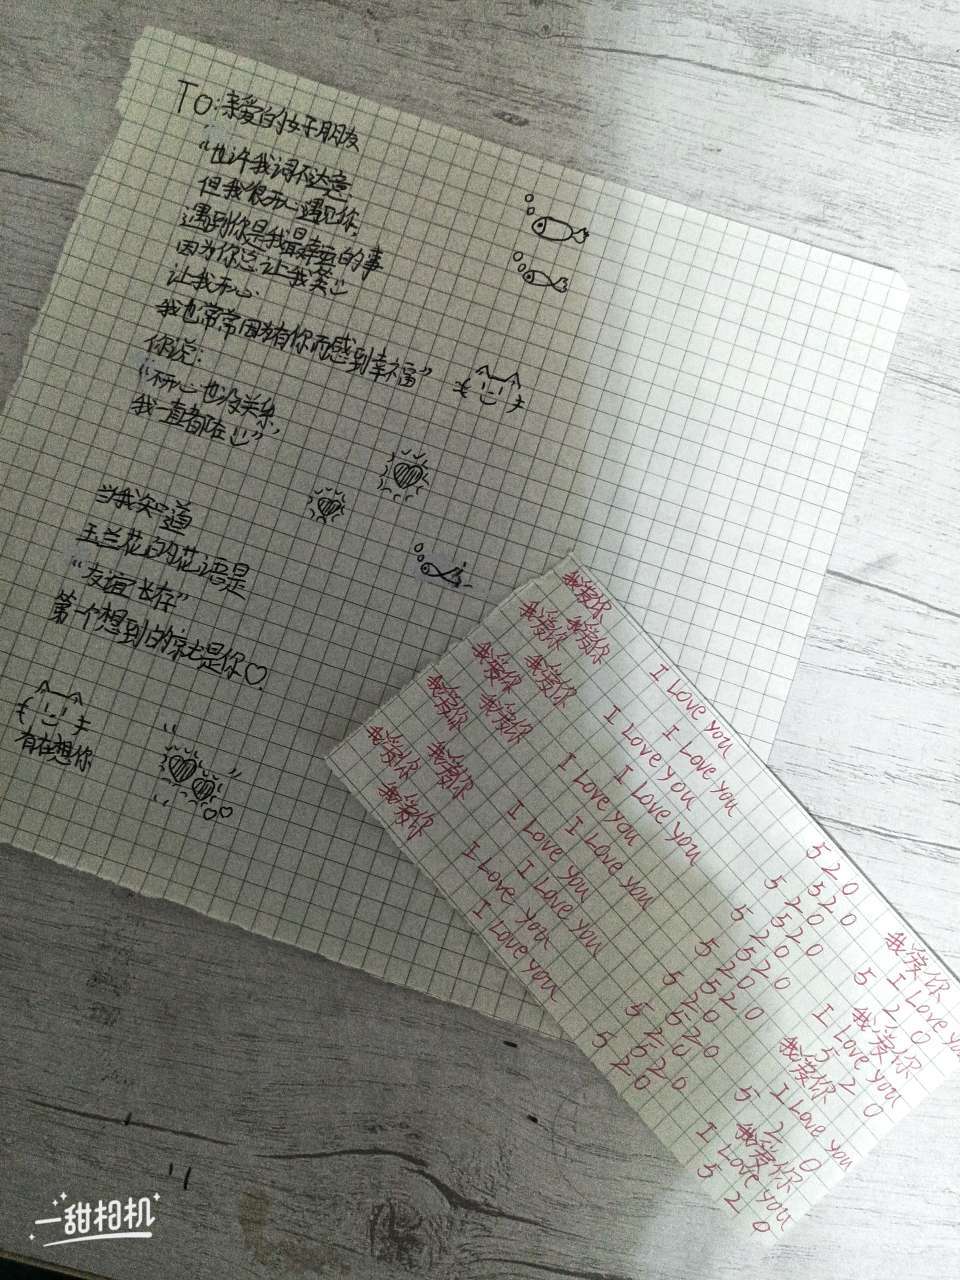 TO:亲爱的女子朋友
“也许我词不达意
但我很开心遇见你,
遇到你是我最幸运的事
因为你总让我笑
让我开心.
我也常常因为有你而感到幸福”
你说:
“不开心也没关系,
我一直都在”
当我知道
玉兰花的花语是
“友谊长存”
第一个想到的就是你♡.
有在想你
我爱你
我爱你
我爱你
我爱你
我爱你
我爱你
我爱你
我爱你
我爱你
我爱你
I Love you
I Love you
I Love you
I Love you
I Love you
I Love you
I Love you
I Love you
I Love you
I Love you
520
520
520
520
520
520
520
520
520
520
520
520
我爱你
I Love you
520
我爱你
I Love you
520
我爱你
I Love you
520
我爱你
I Love you
520
一甜相机